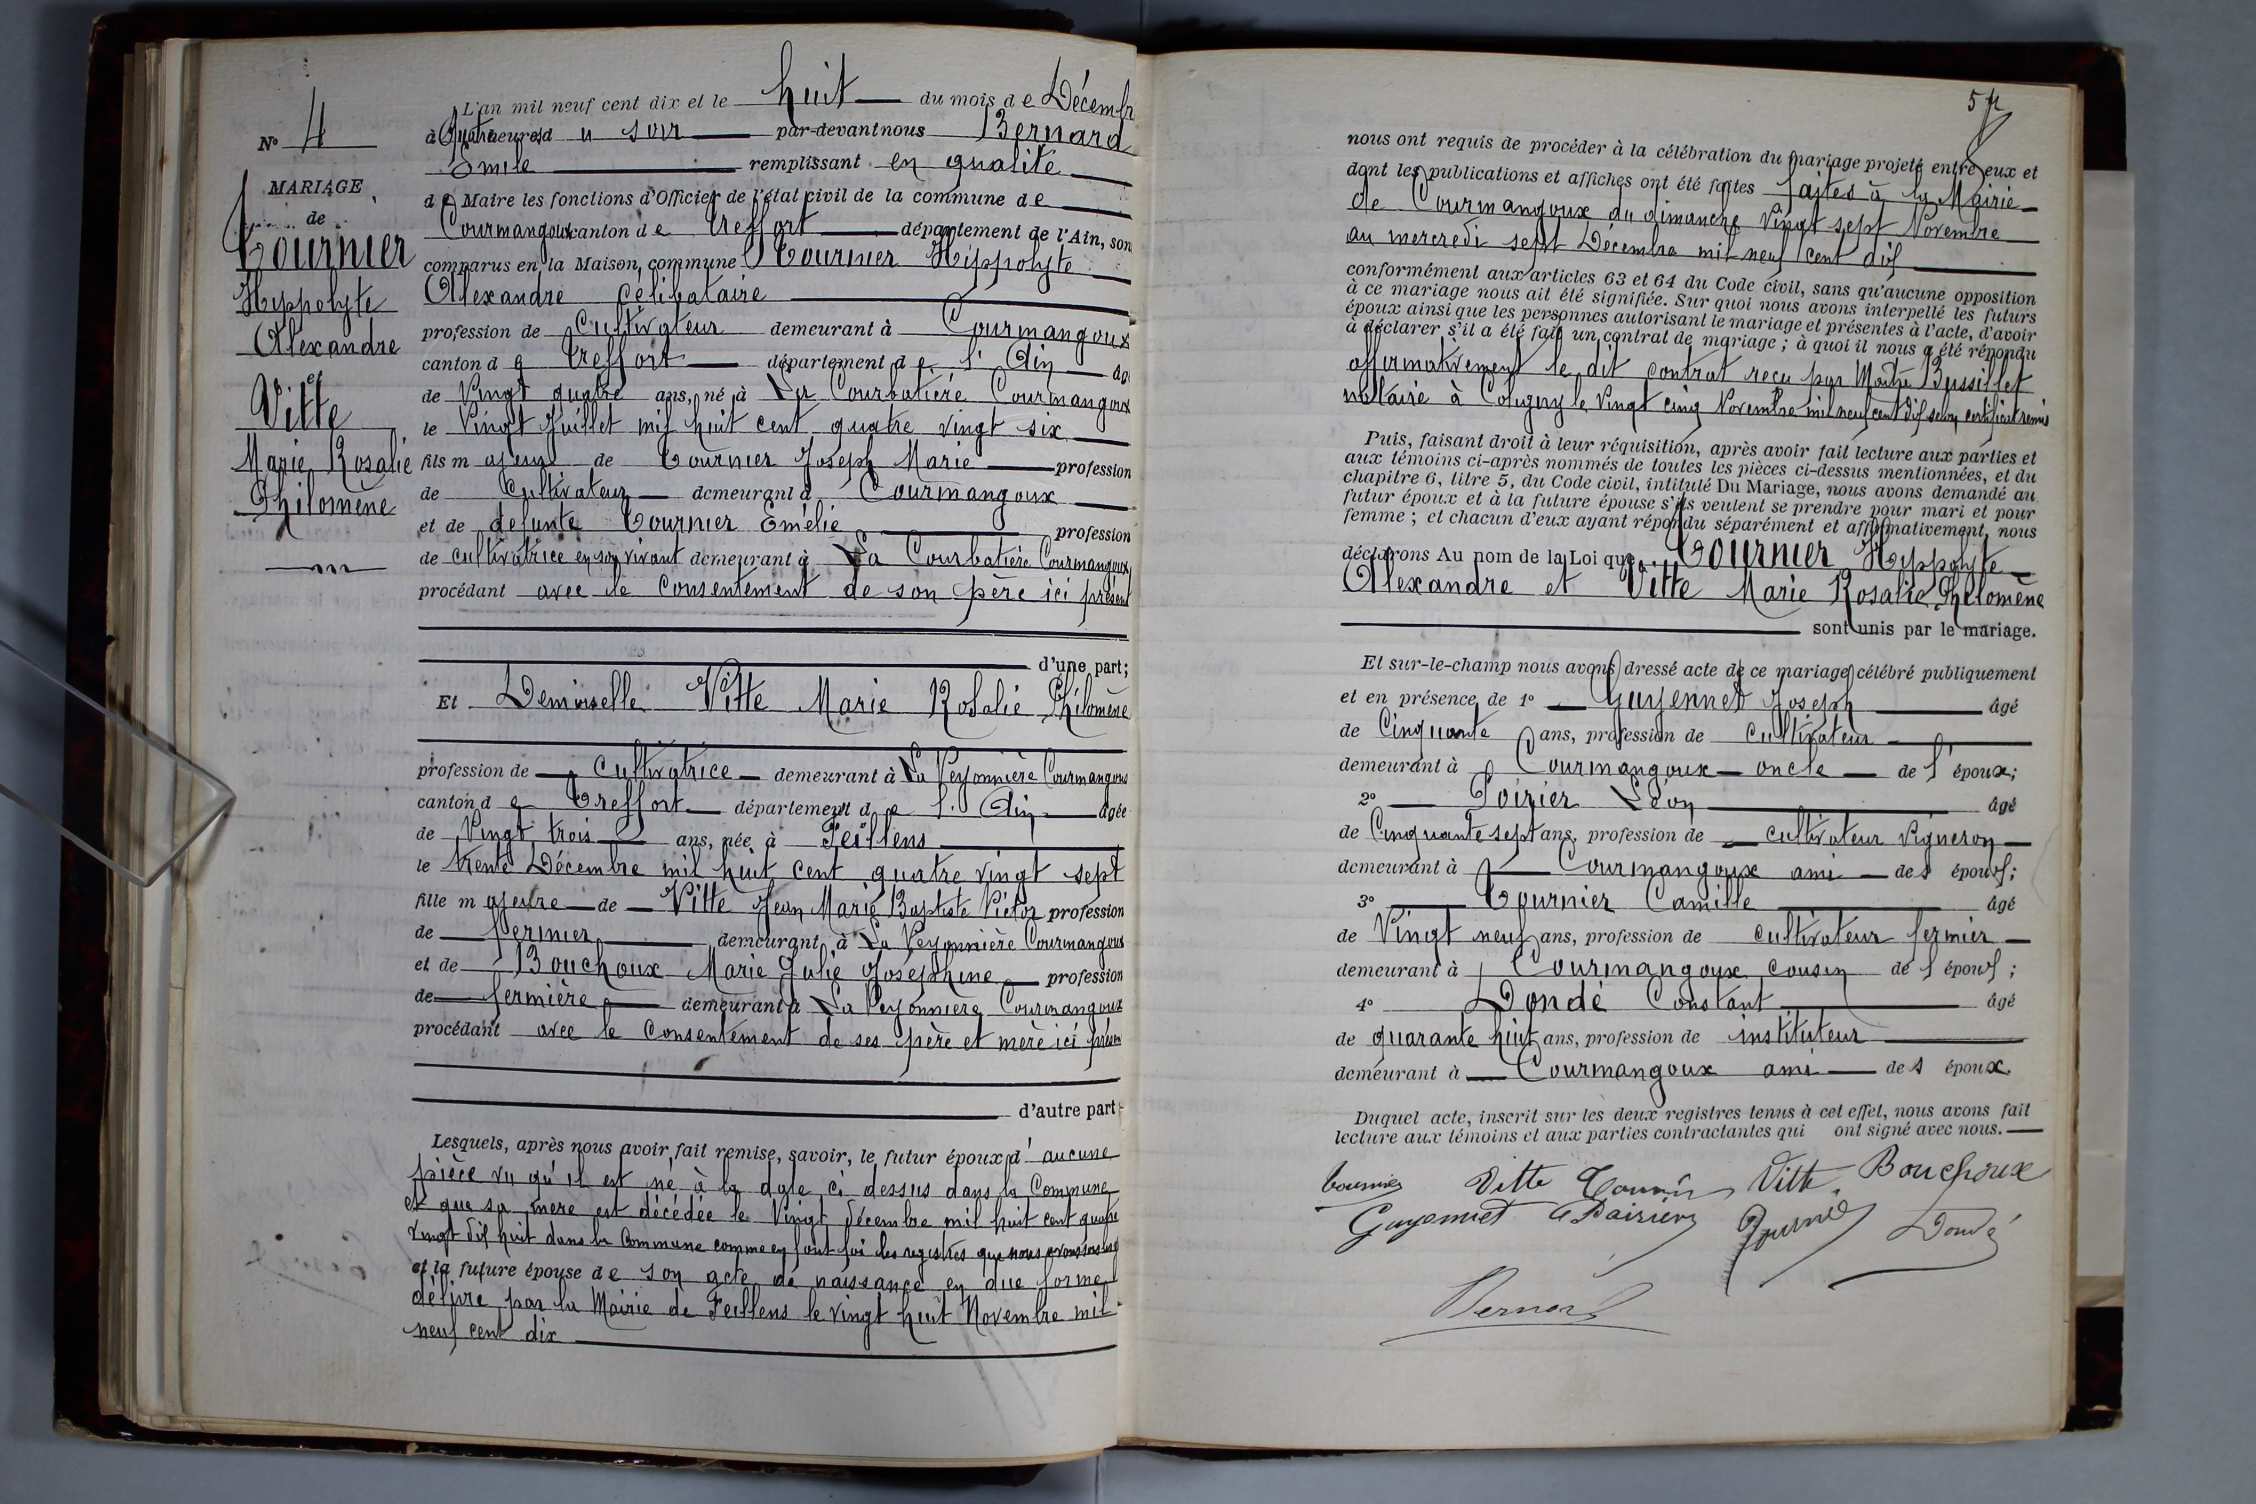 N° 4
MARIAGE
de
Tournier
Hyppolyte
Alexandre
et
Vitte
Marie Rosalie
Philomène
L'an mil neuf cent dix et le huit du mois de Décembr
à quatre heures du soir par-devant nous Bernard
Emile remplissant en qualité
de Maire les fonctions d'Officier de l'état civil de la commune de
Courmangoux canton de Treffort département de l'Ain, son
comparus en la Maison commune Tournier Hyppolyte
Alexandre célibataire
profession de Cultivateur demeurant à Courmangoux
canton de Treffort département de l'Ain âg
de Vingt quatre ans, né à La Courbatière Courmangoux
le Vingt Juillet mil huit cent quatre vingt six
fils majeur de Tournier Joseph Marie profession
de Cultivateur demeurant à Courmangoux
et de defunte Tournier Emélie profession
de cultivatrice en son vivant demeurant à La Courbatière Courmangoux
procédant avec le consentement de son père ici présent
d'une part;
Et Demoiselle Vitte Marie Rosalie Philomène
profession de Cultivatrice demeurant à La Veyonnière Courmangoux
canton de Treffort département de l'Ain âgée
de Vingt trois ans, née à Feillens
le trente Décembre mil huit cent quatre vingt sept
fille majeure de Vitte Jean Marie Baptiste Victor profession
de fermier demeurant à La Veyonnière Courmangoux
et de Bouchoux Marie Julie Joséphine profession
de fermière demeurant à La Veyonnière Courmangoux
procédant avec le consentement de ses père et mère ici présen
d'autre part
Lesquels, après nous avoir fait remise, savoir, le futur époux d'aucune
pièce vu qu'il est né à la date ci dessus dans la Commune
et que sa mère est décédée le Vingt décembre mil huit cent quatre
vingt dif huit dans la Commune comme en font foi les registres que nous avons
et la future épouse de son acte de naissance en due forme
délivré par la Mairie de Feillens le vingt huit Novembre mil
neuf cent dix
5
nous ont requis de procéder à la célébration du mariage projeté entre eux et
dont les publications et affiches ont été faites faites à la Mairie
de Courmangoux du dimanche Vingt sept Novembre
au mercredi sept Décembre mil neuf cent dif
conformément aux articles 63 et 64 du Code civil, sans qu'aucune opposition
à ce mariage nous ait été signifiée. Sur quoi nous avons interpellé les futurs
époux ainsi que les personnes autorisant le mariage et présentes à l'acte, d'avoir
à déclarer s'il a été fait un contrat de mariage ; à quoi il nous a été répondu
affirmativement le dit contrat reçu par Maître Bussillet
notaire à Coligny le Vingt cinq Novembre mil neuf cent dif selon certificat remis
Puis, faisant droit à leur réquisition, après avoir fait lecture aux parties et
aux témoins ci-après nommés de toutes les pièces ci-dessus mentionnées, et du
chapitre 6, litre 5, du Code civil, intitulé Du Mariage, nous avons demandé au
futur époux et à la future épouse s'ils veulent se prendre pour mari et pour
femme ; et chacun d'eux ayant répondu séparément et affirmativement, nous
déclarons Au nom de la Loi que Tournier Hyppolyte
Alexandre et Vitte Marie Rosalie Philomène
sont unis par le mariage.
Et sur-le-champ nous avons dressé acte de ce mariage célébré publiquement
et en présence de 1° Guyennet Joseph âgé
de Cinquante ans, profession de cultivateur
demeurant à Courmangoux oncle de l'époux;
2° Poirier Léon âgé
de Cinquante sept ans, profession de cultivateur vigneron
demeurant à Courmangoux ami des épouf;
3° Tournier Camille âgé
de Vingt neuf ans, profession de cultivateur fermier
demeurant à Courmangoux cousin de l épouf ;
4° Dondé Constant âgé
de quarante huit ans, profession de instituteur
demeurant à Courmangoux ami des époux.
Duquel acte, inscrit sur les deux registres tenus à cet effet, nous avons fait
lecture aux témoins et aux parties contractantes qui ont signé avec nous.
Tournier Vitte Tournier Vitte Bouchoux
Guyennet Poirier Tournier Dondé
Bernard